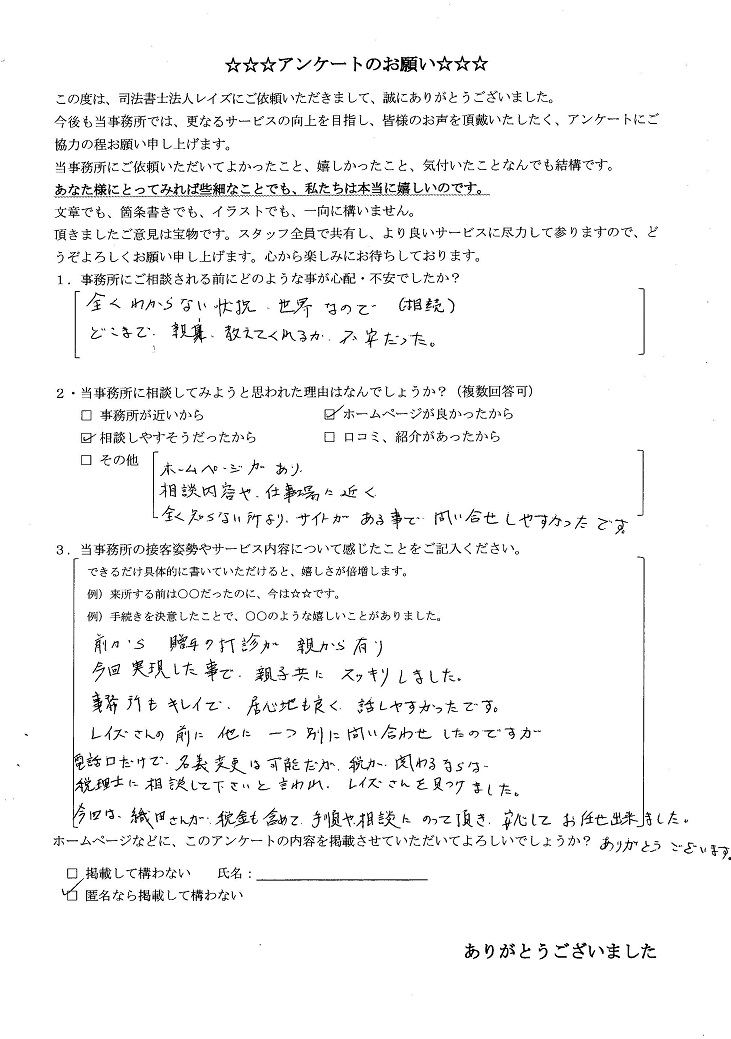 ☆☆☆アンケートのお願い☆☆☆
この度は、司法書士法人レイズにご依頼いただきまして、誠にありがとうございました。
今後も当事務所では、更なるサービスの向上を目指し、皆様のお声を頂戴いたしたく、アンケートにご
協力の程お願い申し上げます。
当事務所にご依頼いただいてよかったこと、嬉しかったこと、気付いたことなんでも結構です。
あなた様にとってみれば些細なことでも、私たちは本当に嬉しいのです。
文章でも、箇条書きでも、イラストでも、一向に構いません。
頂きましたご意見は宝物です。スタッフ全員で共有し、より良いサービスに尽力して参りますので、ど
うぞよろしくお願い申し上げます。心から楽しみにお待ちしております。
１．事務所にご相談される前にどのような事が心配・不安でしたか？
全くわからない状況、世界なので（相続）
どこまで、親身、教えてくれるか、不安だった。
２・当事務所に相談してみようと思われた理由はなんでしょうか？（複数回答可）
□ 事務所が近いから ☑ホームページが良かったから
☑相談しやすそうだったから □ 口コミ、紹介があったから
□ その他
ホームページがあり、
相談内容や、仕事場に近く
全く知らない所より、サイトがある事で問い合せしやすかったです
３．当事務所の接客姿勢やサービス内容について感じたことをご記入ください。
できるだけ具体的に書いていただけると、嬉しさが倍増します。
例）来所する前は〇〇だったのに、今は☆☆です。
例）手続きを決意したことで、〇〇のような嬉しいことがありました。
前から 贈与の打診が 親から有り
今回実現した事で、親子共に スッキリしました。
事務所もキレイで、居心地も良く、話しやすかったです。
レイズさんの前に他に一つ別に問い合わせしたのですが
電話口だけで、名義変更は可能だが、税が関わるならば
税理士に相談して下さいと言われ、レイズさんを見つけました。
今回は、織田さんが、税金も含めて、手順や相談にのって頂き、安心してお任せ出来ました。
ありがとうございます。
ホームページなどに、このアンケートの内容を掲載させていただいてよろしいでしょうか？
□ 掲載して構わない 氏名：
☑ 匿名なら掲載して構わない
ありがとうございました